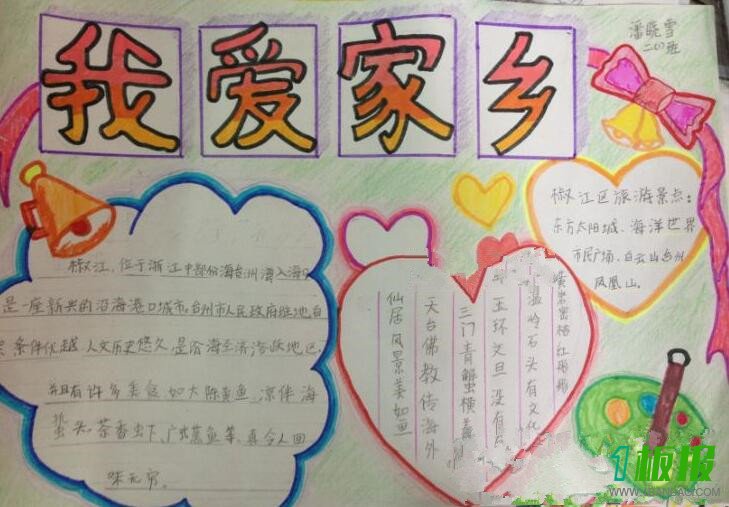 我爱家乡
潘晓雪
二(1)班
椒江区旅游景点:
东方太阳城、海洋世界
市民广场、白云山台州
凤凰山。
椒江,位于浙江中部沿海台州湾入海口
是一座新兴的沿海港口城市,台州市人民政府驻地,自
条件优越,人文历史悠久,是沿海经济活跃地区,
并且有许多美食,如大陈黄鱼,凉伴海
蜇头,茶香虾,广式蒸鱼等,真令人回
味无穷。
蜜桔红彤彤
温岭石头有文化
玉环文旦没有
三门青蟹横着
天台佛教传海外
仙居风景美如鱼
1板报
WWW.1BANBAO.COM